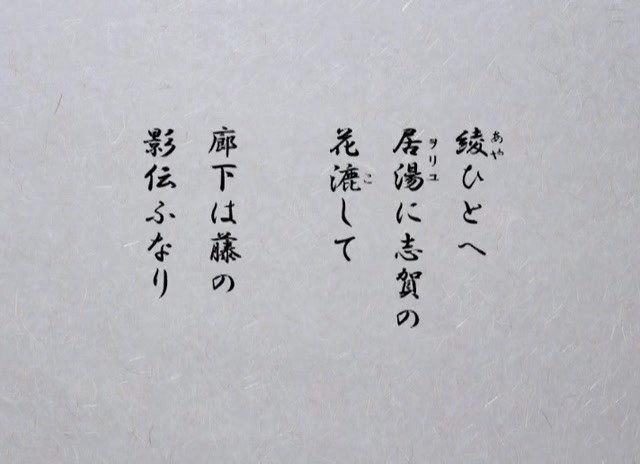 綾ひとへ
居湯に志賀の
花漉して
廊下は藤の
影伝ふなり
あや
ヲリユ
こ